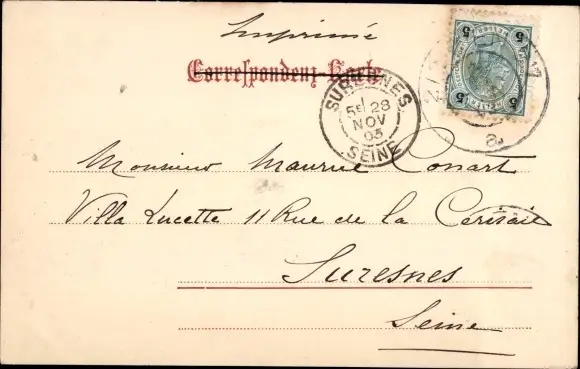 Imprimé
Correspondenz-Karte
SURESNES
5E 28
NOV
03
SEINE
a
5 5
5 5
Monsieur Maurice Conart
Villa Lucette 11 Rue de la Cerisaie
Suresnes
Seine